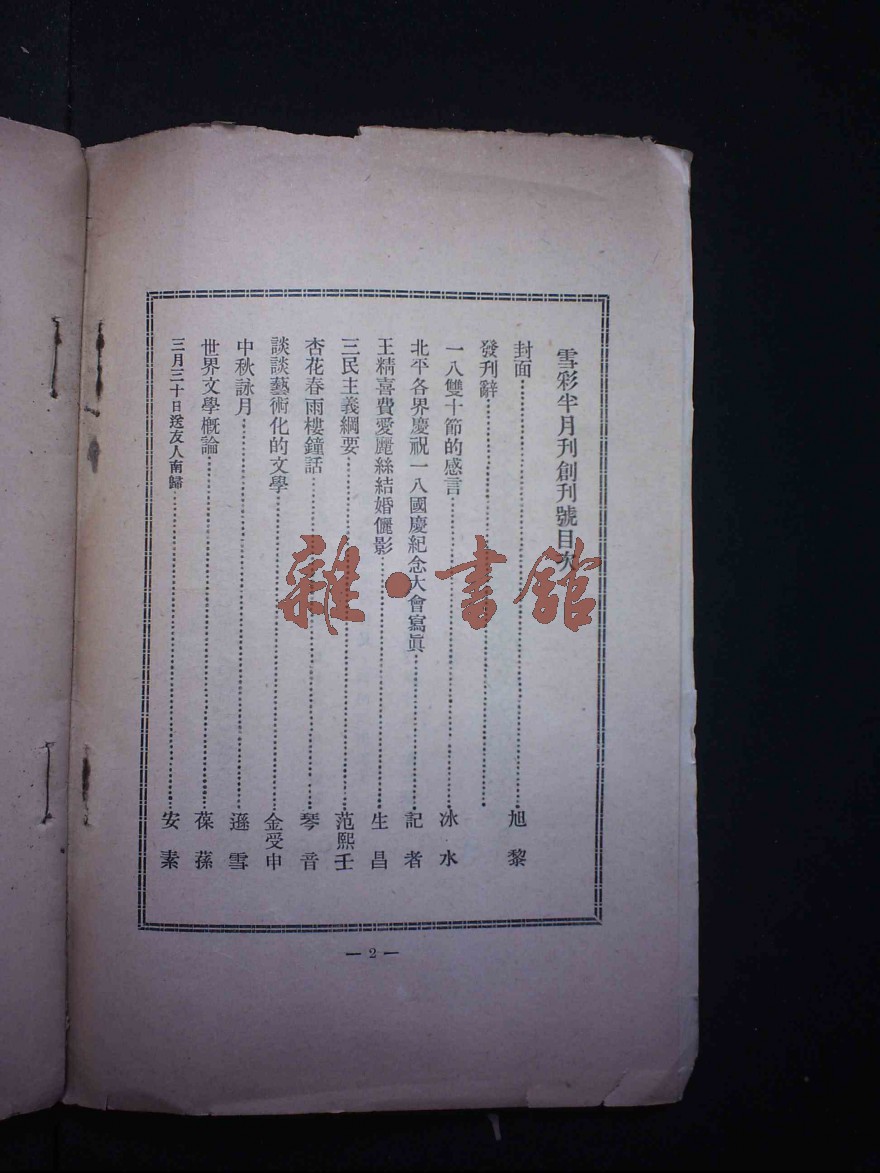 雪彩半月刊創刊號目次
封面 旭黎
發刊辭
一八雙十節的感言 冰水
北平各界慶祝一八國慶紀念大會寫眞 記者
王精喜費愛麗絲結婚儷影 生昌
三民主義綱要 范熙壬
杏花春雨樓鐘話 琴音
談談藝術化的文學 金受申
中秋詠月 遜雪
世界文學槪論 葆蓀
三月三十日送友人南歸 安素
— 2 —
雜·書館